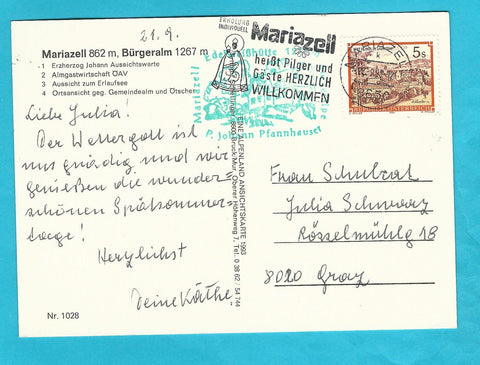 21.9.
Mariazell 862 m, Bürgeralm 1267 m
1 Erzherzog Johann Aussichtswarte
2 Almgastwirtschaft ÖAV
3 Aussicht zum Erlaufsee
4 Ortsansicht geg. Gemeindealm und Ötscher
Liebe Julia!
Der Wettergott ist
uns gnädig und wir
genießen die wunder=
schönen Spätsommer
tage!
Herzlichst
Deine Käthe
Nr. 1028
ERHOLUNG
INDIVIDUELL
Mariazell
heißt Pilger und
Gäste HERZLICH
WILLKOMMEN
Mariazell
P. Johann Pfannhauser
EINE ALPENLAND ANSICHTSKARTE 1993
8600 Bruck/Mur, Oberer Höhenweg 7, Tel. 0 38 62 / 54 744
5s
Frau Schulrat
Julia Schwarz
Rösselmühlg 18
8020 Graz